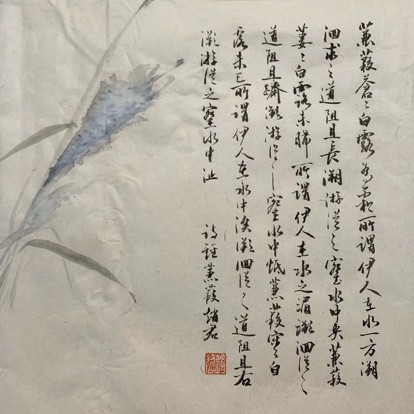 蒹葭蒼〻白露為霜所謂伊人在水一方溯
洄求之道阻且長溯游從之宛在水中央蒹葭
萋〻白露未晞所謂伊人在水之湄溯洄從之
道阻且躋溯游從之宛在水中坻蒹葭采〻白
露未已所謂伊人在水中涘溯洄從之道阻且右
溯游從之宛在水中沚
詩經蒹葭